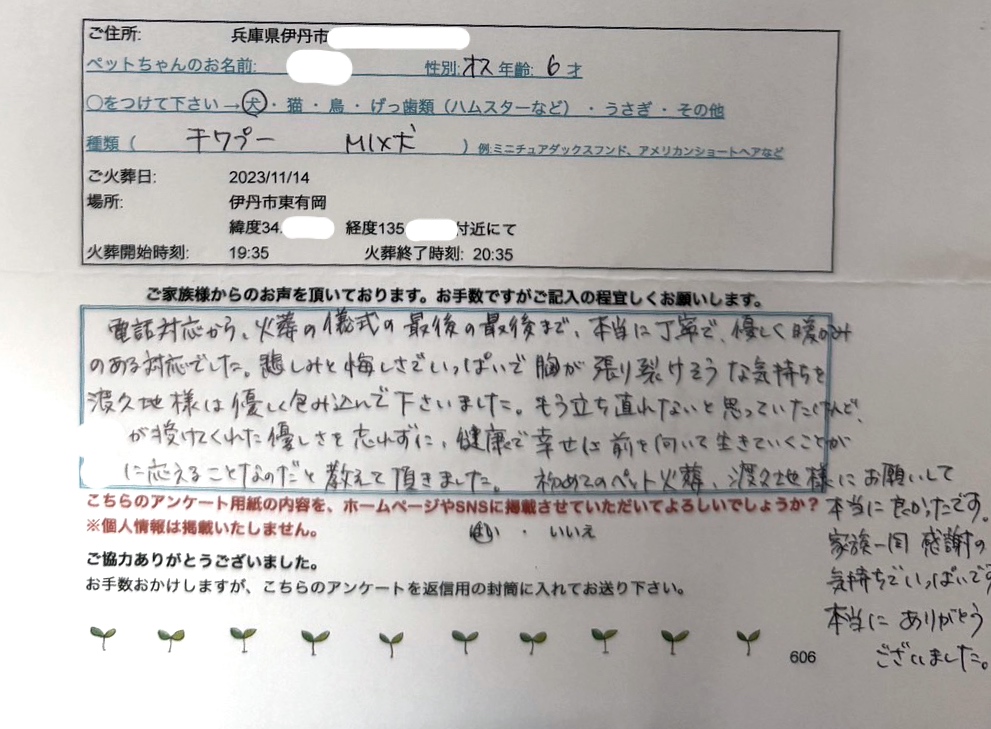 ご住所: 兵庫県伊丹市
ペットちゃんのお名前: 性別:オス 年齢: 6 才
○をつけて下さい→犬・猫・鳥・げっ歯類（ハムスターなど）・うさぎ・その他
種類（ チワプー MIX犬 ）例:ミニチュアダックスフンド、アメリカンショートヘアなど
ご火葬日: 2023/11/14
場所: 伊丹市東有岡
緯度34. 経度135 付近にて
火葬開始時刻: 19:35 火葬終了時刻: 20:35
ご家族様からのお声を頂いております。お手数ですがご記入の程宜しくお願いします。
電話対応から、火葬の儀式の最後の最後まで、本当に丁寧で、優しく暖かみ
のある対応でした。悲しみと悔しさでいっぱいで胸が張り裂けそうな気持ちを
渡久地様は優しく包み込んで下さいました。もう立ち直れないと思っていたけれど、
が授けてくれた優しさを忘れずに、健康で幸せに前を向いて生きていくことが
に応えることなのだと教えて頂きました。初めてのペット火葬、渡久地様にお願いして
本当に良かったです。
家族一同 感謝の
気持ちでいっぱいです
本当にありがとう
ございました。
こちらのアンケート用紙の内容を、ホームページやSNSに掲載させていただいてよろしいでしょうか？
※個人情報は掲載いたしません。 はい ・ いいえ
ご協力ありがとうございました。
お手数おかけしますが、こちらのアンケートを返信用の封筒に入れてお送り下さい。
606